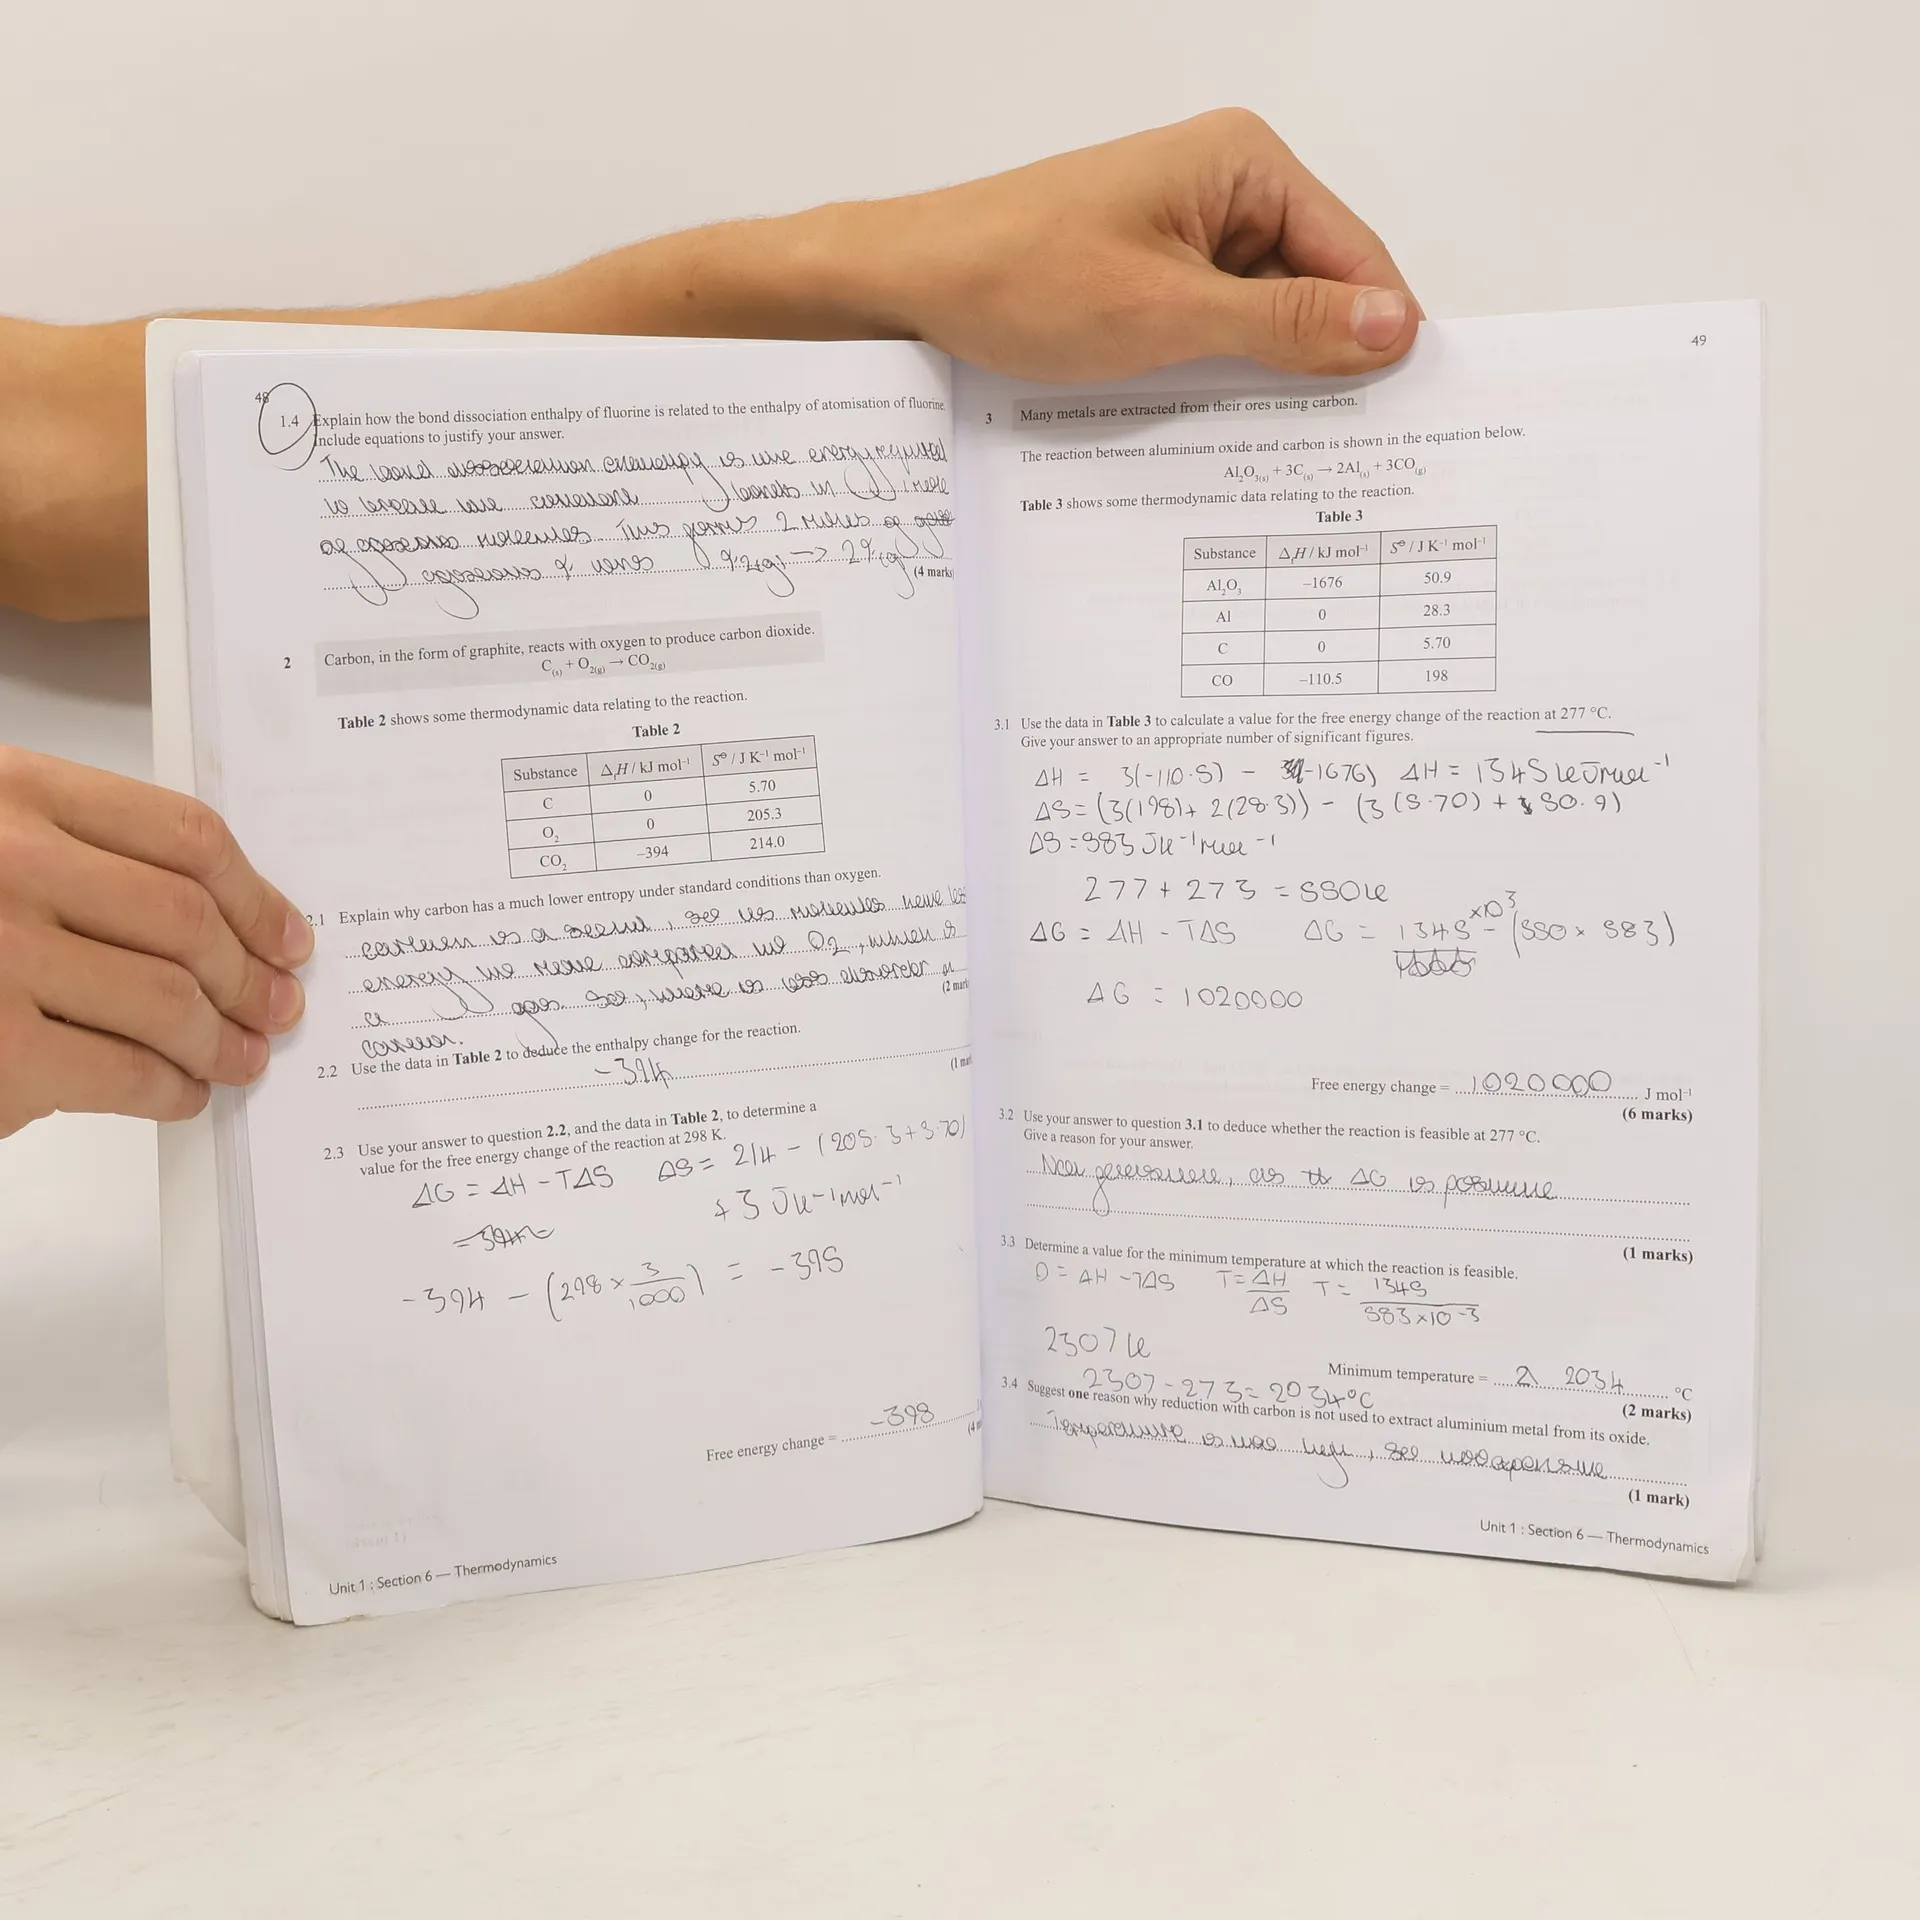 48
1.4 Explain how the bond dissociation enthalpy of fluorine is related to the enthalpy of atomisation of fluorine.
Include equations to justify your answer.
The bond dissociation enthalpy is the energy required
to break the covalent bonds in 1 mole
of gaseous molecules. This forms 2 moles of
gaseous
(4 marks)
2 Carbon, in the form of graphite, reacts with oxygen to produce carbon dioxide.
C(s) + O2(g) → CO2(g)
Table 2 shows some thermodynamic data relating to the reaction.
Table 2
Substance ΔfH / kJ mol–1 S⦵ / J K–1 mol–1
C 0 5.70
O2 0 205.3
CO2 –394 214.0
2.1 Explain why carbon has a much lower entropy under standard conditions than oxygen.
carbon is a solid, so its molecules have less
energy to move compared to O2, which is
a gas. So, there is less disorder in
carbon.
(2 mark
2.2 Use the data in Table 2 to deduce the enthalpy change for the reaction.
-394
(1 mar
2.3 Use your answer to question 2.2, and the data in Table 2, to determine a
value for the free energy change of the reaction at 298 K.
ΔG = ΔH - TΔS ΔS = 214 - (205.3+5.70)
+3 JK-1 mol-1
=394
-394 - (298 × 3/1000) = -395
Free energy change = -398
(4 m
Unit 1 : Section 6 — Thermodynamics
49
3 Many metals are extracted from their ores using carbon.
The reaction between aluminium oxide and carbon is shown in the equation below.
Al2O3(s) + 3C(s) → 2Al(s) + 3CO(g)
Table 3 shows some thermodynamic data relating to the reaction.
Table 3
Substance ΔfH / kJ mol–1 S⦵ / J K–1 mol–1
Al2O3 –1676 50.9
Al 0 28.3
C 0 5.70
CO –110.5 198
3.1 Use the data in Table 3 to calculate a value for the free energy change of the reaction at 277 °C.
Give your answer to an appropriate number of significant figures.
ΔH = 3(-110.5) - (-1676) ΔH = 1345 kJmol-1
ΔS = (3(198)+ 2(28.3)) - (3(5.70) + 50.9)
ΔS = 583 JK-1 mol-1
277 + 273 = 550K
ΔG = ΔH - TΔS ΔG = 1345 ×10^3 - (550 × 583)
ΔG = 1020000
Free energy change = 1020000 J mol–1
(6 marks)
3.2 Use your answer to question 3.1 to deduce whether the reaction is feasible at 277 °C.
Give a reason for your answer.
Not feasible, as the ΔG is positive
(1 marks)
3.3 Determine a value for the minimum temperature at which the reaction is feasible.
0 = ΔH - TΔS T = ΔH/ΔS T = 1345/583×10-3
2307 K
Minimum temperature = 2034 °C
2307 - 273 = 2034°C
(2 marks)
3.4 Suggest one reason why reduction with carbon is not used to extract aluminium metal from its oxide.
Temperature is too high, so too expensive
(1 mark)
Unit 1 : Section 6 — Thermodynamics